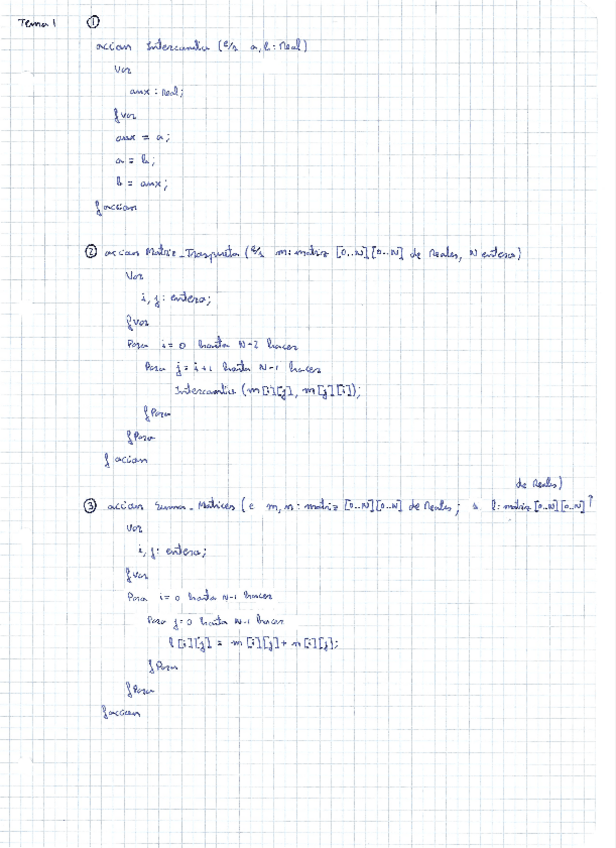 Tema 1 ①
accion Intercambia (e/s a, b : Real)
Var
aux : real;
fvar
aux = a;
a = b;
b = aux;
faccion
② accion Matriz_Traspuesta (e/s m: matriz [0..N][0..N] de Reales, N entero)
Var
i, j : entero;
fvar
Para i = 0 hasta N-2 hacer
Para j = i+1 hasta N-1 hacer
Intercambia (m[i][j], m[j][i]);
fPara
fPara
faccion
de Reales)
③ accion Suma_Matrices (e m, n : matriz [0..N][0..N] de Reales; s l: matriz [0..N][0..N]
Var
i, j : entero;
fvar
Para i = 0 hasta N-1 hacer
Para j = 0 hasta N-1 hacer
l[i][j] = m[i][j] + n[i][j];
fPara
fPara
faccion